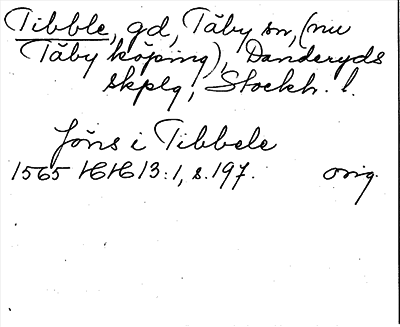 Tibble, gd, Täby sn, (nu
Täby köping), Danderyds
skplg, Stockh. l.
Jöns i Tibbele
1565 HH 13:1, s. 197. orig.